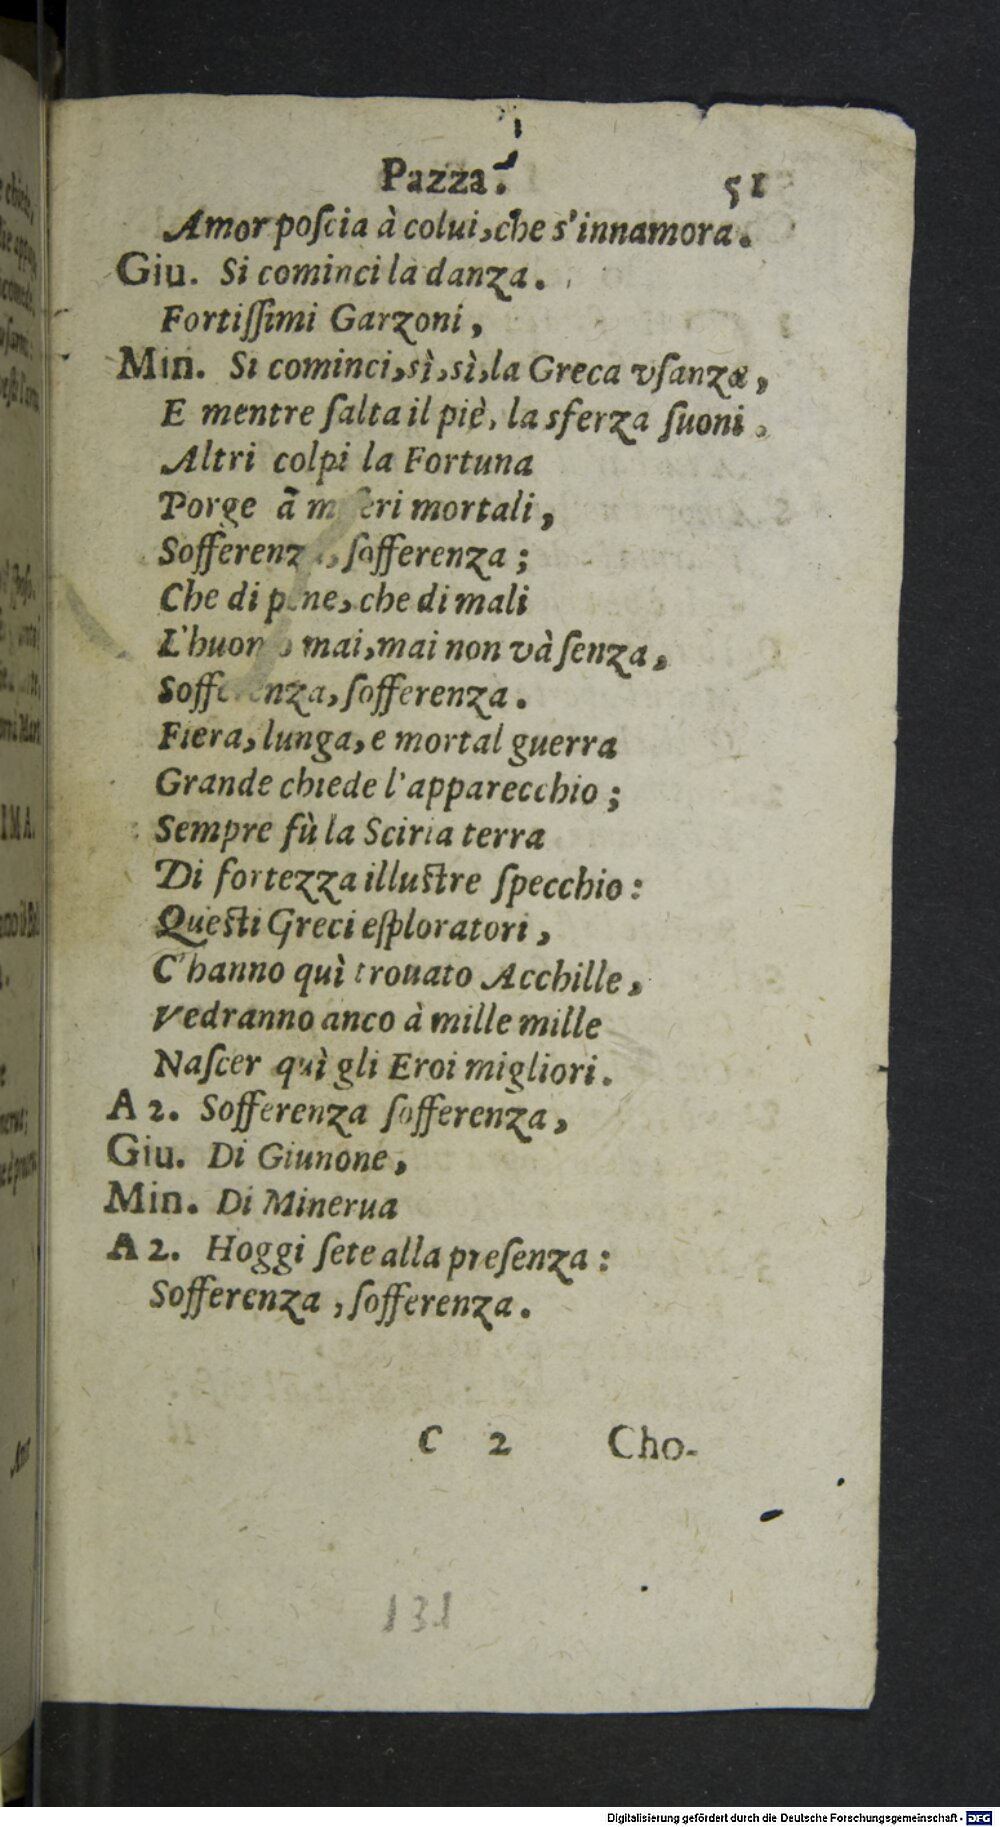 Pazza. 51
Amor poſcia à colui, che s'innamora.
Giu. Si cominci la danza.
Fortiſſimi Garzoni,
Min. Si cominci, sì, sì, la Greca vſanza,
E mentre ſalta il piè, la sferza ſuoni.
Altri colpi la Fortuna
Porge à miſeri mortali,
Sofferenza, ſofferenza;
Che di pene, che di mali
L'huomo mai, mai non và ſenza,
Sofferenza, ſofferenza.
Fiera, lunga, e mortal guerra
Grande chiede l'apparecchio;
Sempre fù la Sciria terra
Di fortezza illuſtre ſpecchio:
Queſti Greci eſploratori,
C'hanno quì trouato Acchille,
Vedranno anco à mille mille
Naſcer quì gli Eroi migliori.
A 2. Sofferenza ſofferenza,
Giu. Di Giunone,
Min. Di Minerua
A 2. Hoggi ſete alla preſenza:
Sofferenza, ſofferenza.
C 2 Cho-
131
Digitalisierung gefördert durch die Deutsche Forschungsgemeinschaft - DFG